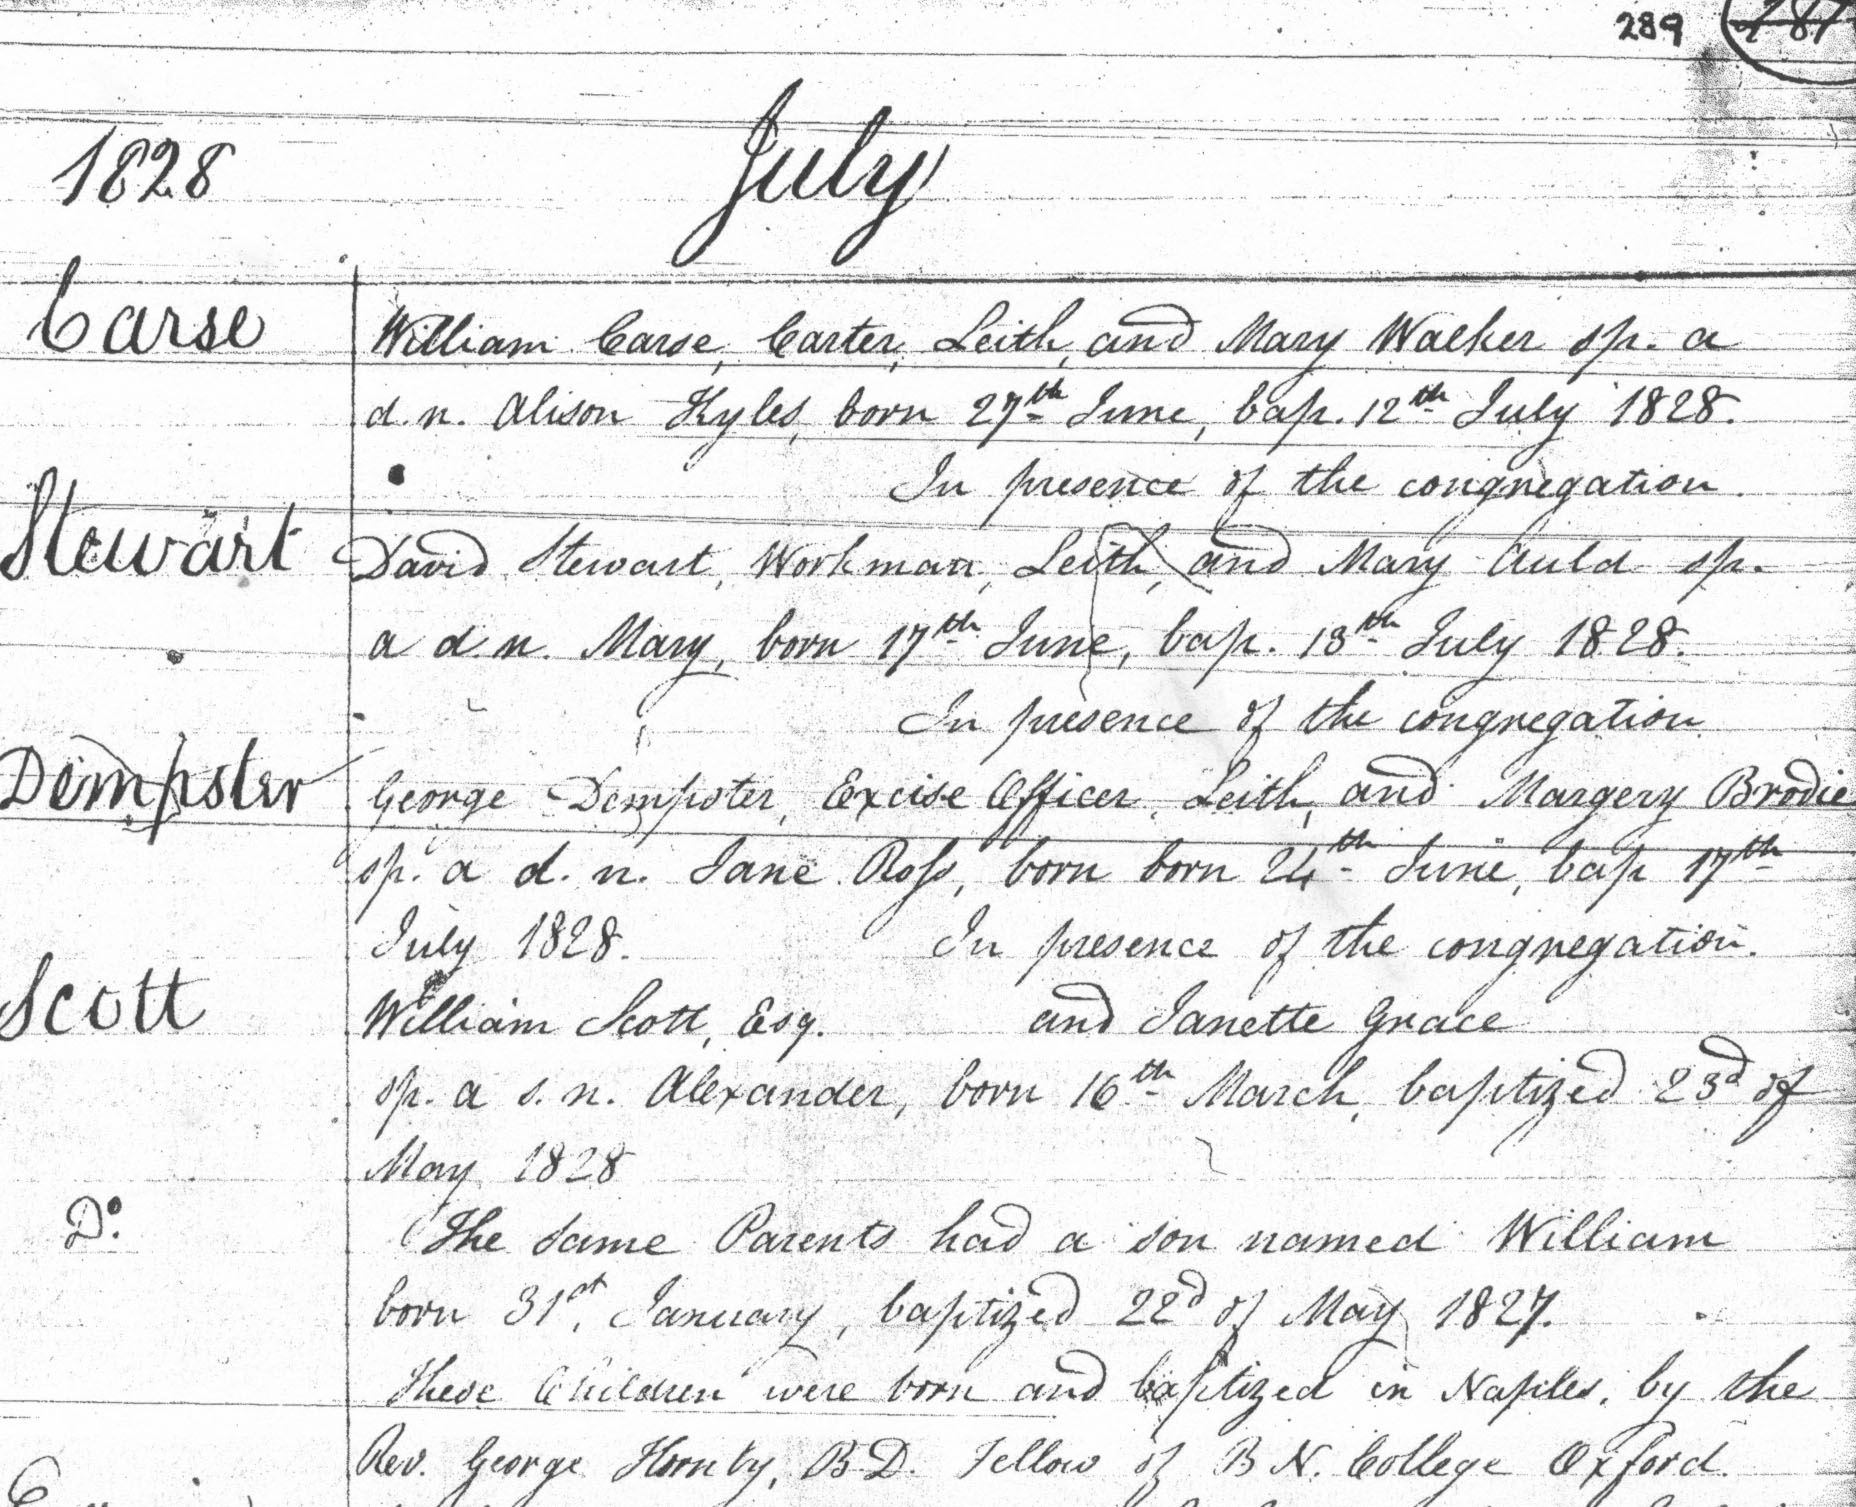 289
1828 July
Carse
William Carse, Carter, Leith, and Mary Walker sp. a
d. n. Alison Kyles, born 27th June, bap. 12th July 1828.
In presence of the congregation.
Stewart
David Stewart, Workman, Leith, and Mary Auld sp.
a d n. Mary, born 17th June, bap. 13th July 1828.
In presence of the congregation
Dempster
George Dempster, Excise Officer, Leith, and Margery Brodie
sp. a d. n. Jane Ross, born born 24th June, bap 17th
July 1828. In presence of the congregation.
Scott
William Scott, Esq. and Janette Grace
sp. a s. n. Alexander, born 16th March, baptized 23d of
May 1828
Do.
The same Parents had a son named William
born 31st, January, baptized 22d of May 1827.
These Children were born and baptized in Naples, by the
Rev. George Hornby, B.D. Fellow of B N. College Oxford.